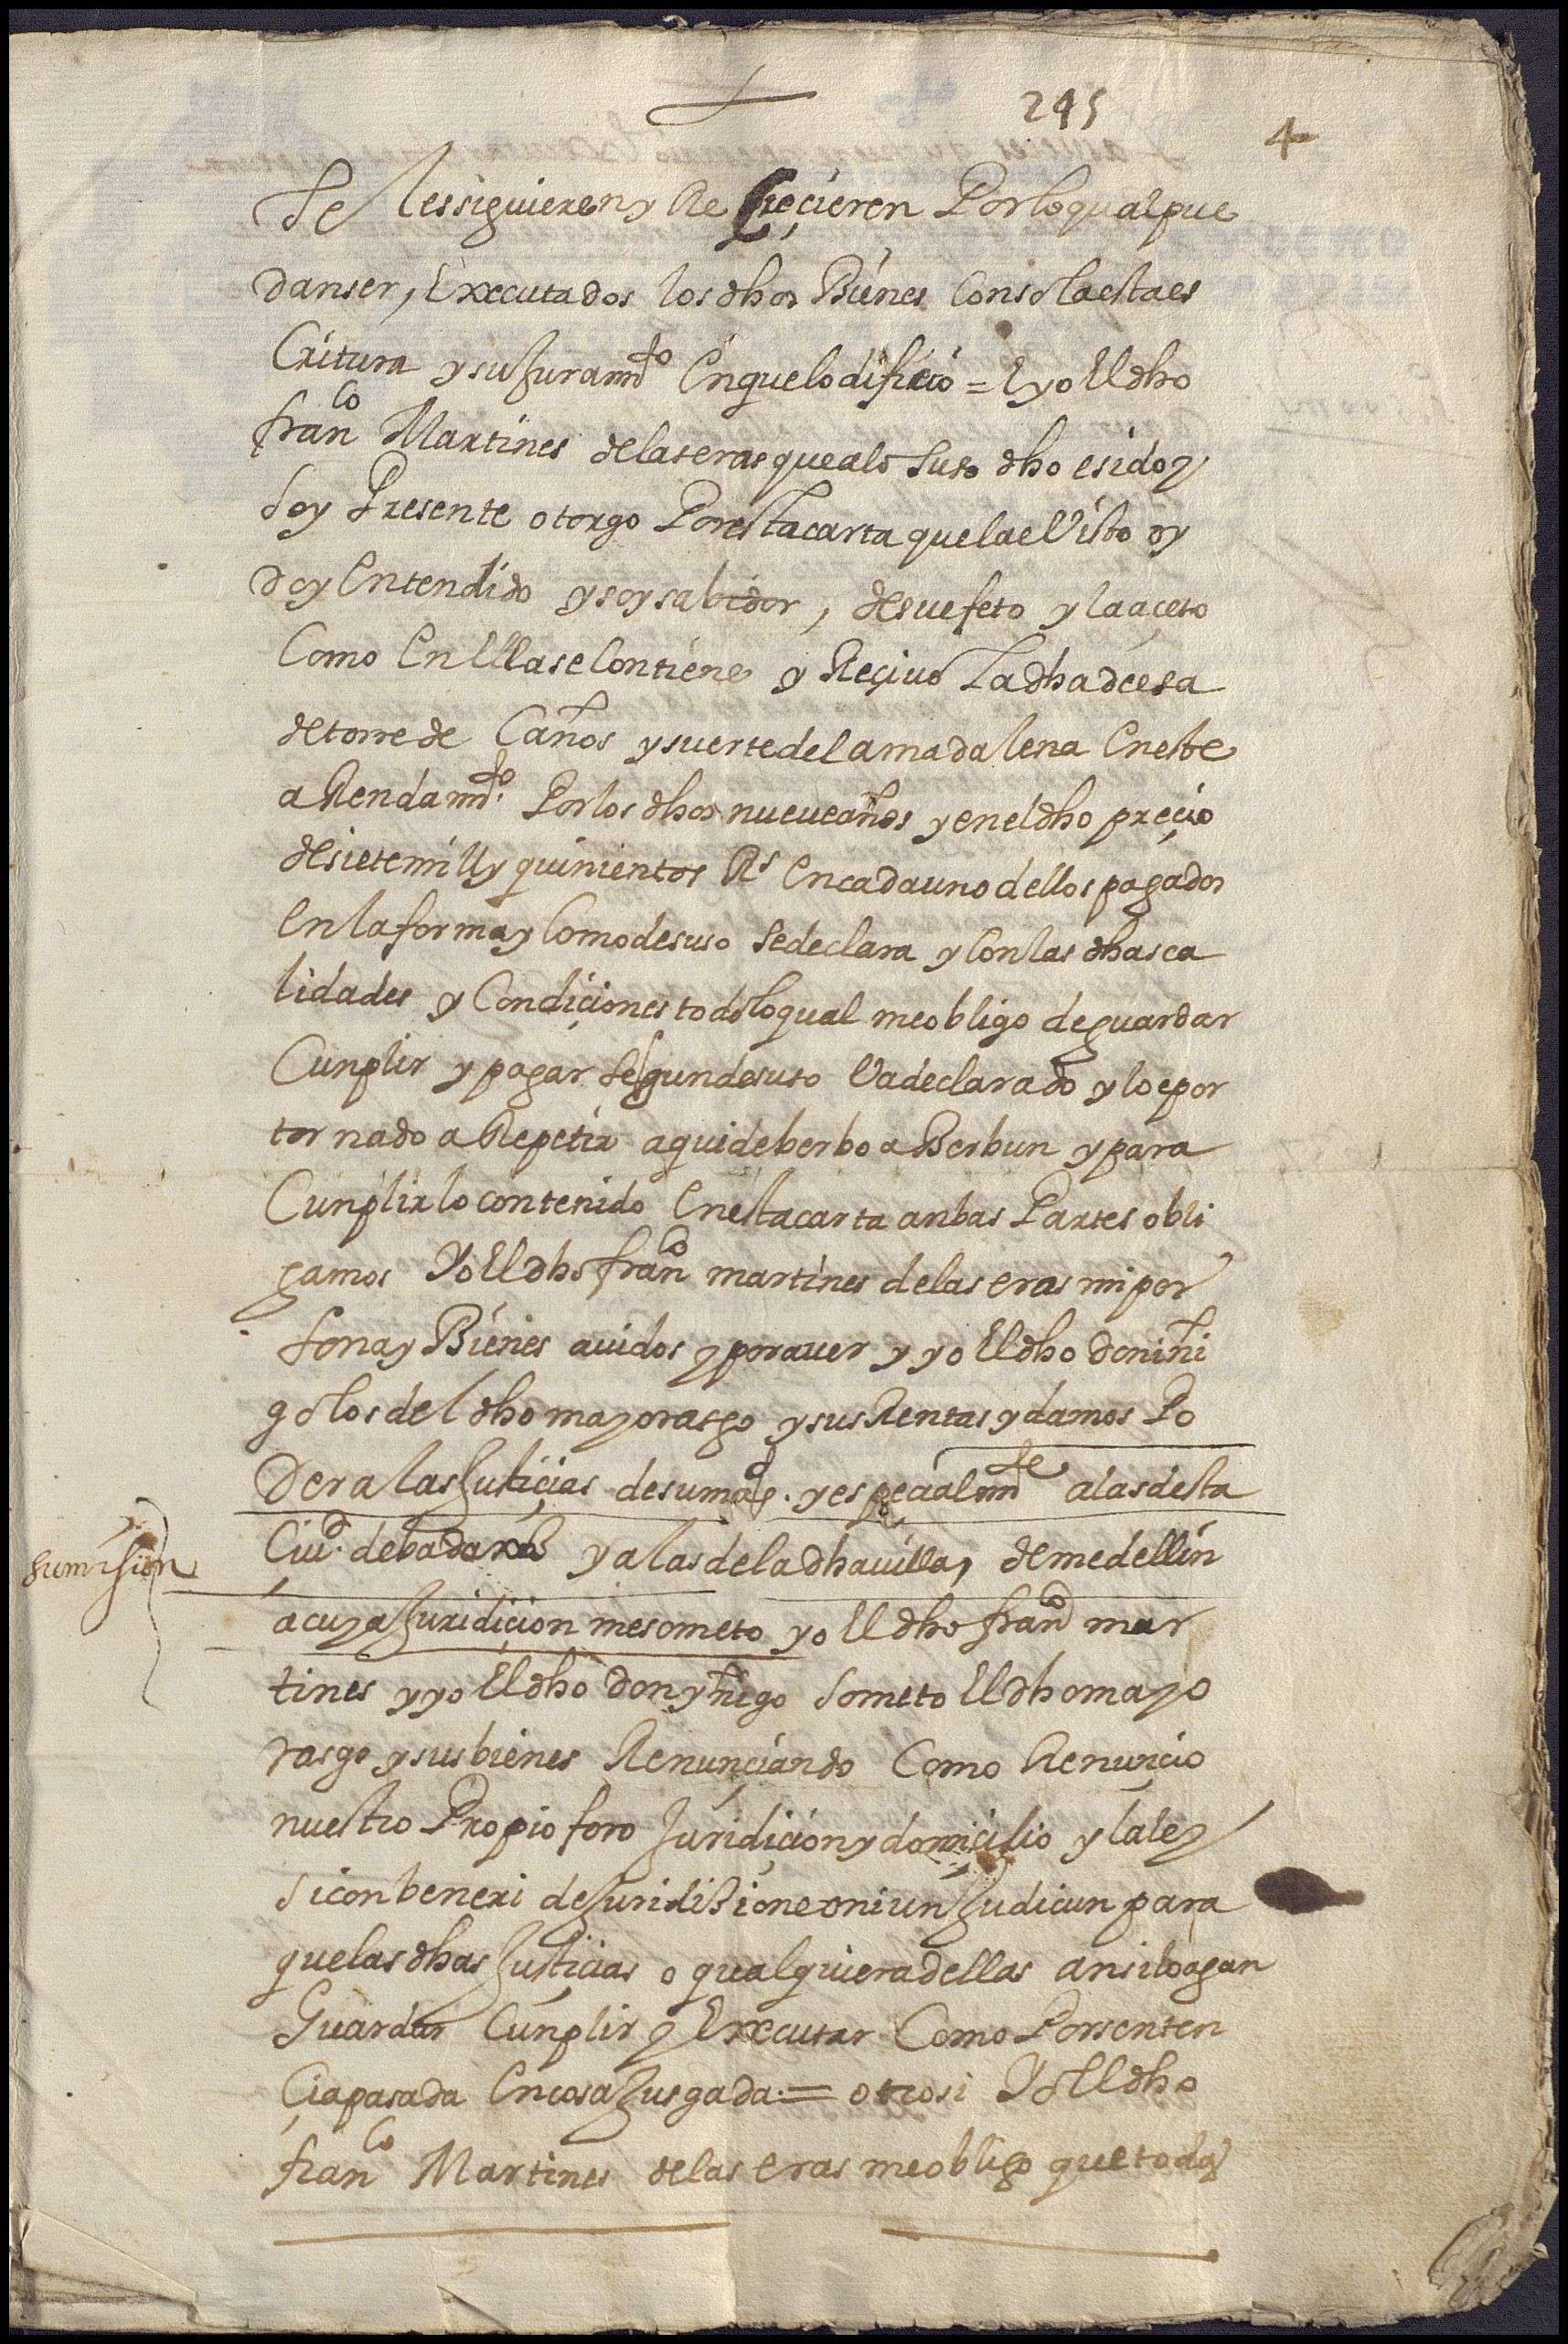 295
4
se les siguieren y Recrecieren Por lo qual pue
dan ser, Executados los dhos Bienes Con sola esta es
Critura y su Juramto En que lo difirio = E yo El dho
franco Martines de las eras que a lo suso dho e sido y
soy Presente otorgo Por esta carta que la e Visto oy
do y Entendido y soy sabidor, de su efeto y la açeto
Como En Ella se Contiene y Reçiuo La dha deesa
de torre de Caños y suerte de la madalena En este
aRendamto. Por los dhos nueue años y en el dho preçio
de siete mill y quinientos Rs En cada uno dellos pagados
En la forma y Como de suso se declara y Con las dhas ca
lidades y Condiçiones todo lo qual me obligo de guardar
Cunplir y pagar segun de suso Va declarado y lo e por
tornado a Repetir aqui de berbo a Berbun y para
Cunplir lo contenido En esta carta anbas Partes obli
gamos Yo El dho franco martines de las eras mi per
sona y Bienes auidos y por auer y yo El dho don iñi
go los del dho mayorasgo y sus Rentas y damos Po
der a las Justiçias de su magd. y espeçialmte a las desta
Çiud. de badaxoz y a las de la dha uilla, de medellin
sumision
a cuya Juridiçion me someto yo El dho franco mar
tines y yo El dho don yñigo someto El dho mayo
rasgo y sus bienes Renunçiando Como Renunçio
nuestro Propio foro Juridiçion y domiçilio y la ley
si conbeneri de Juridisione oniun Judicun para
que las dhas Justiçias o qualquiera dellas ansi lo agan
Guardar Cunplir y Executar Como Por senten
Çia pasada En cosa Jusgada = otrosi Yo El dho
franco Martines de las eras me obligo que todas